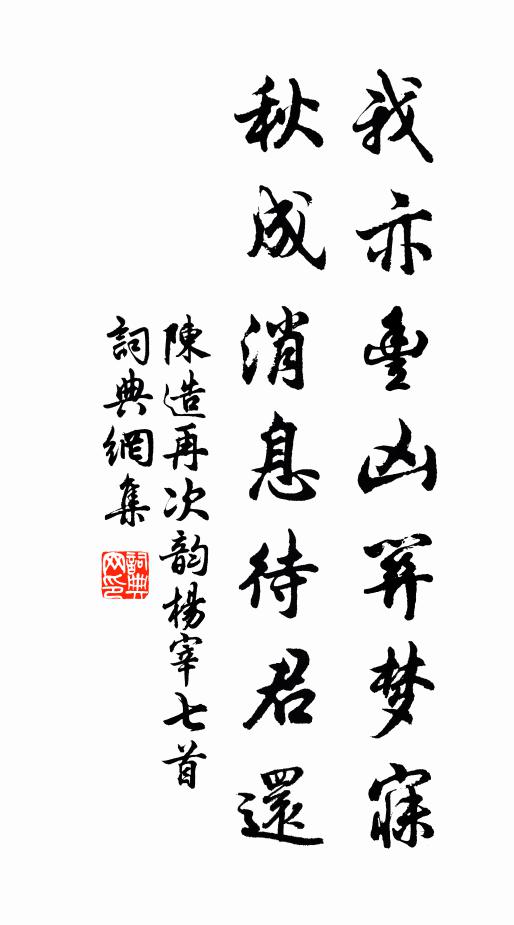 我亦豐凶關梦寐
秋成消息待君還
陳造再次韵楊宰七首
詞典網集
詞典网印